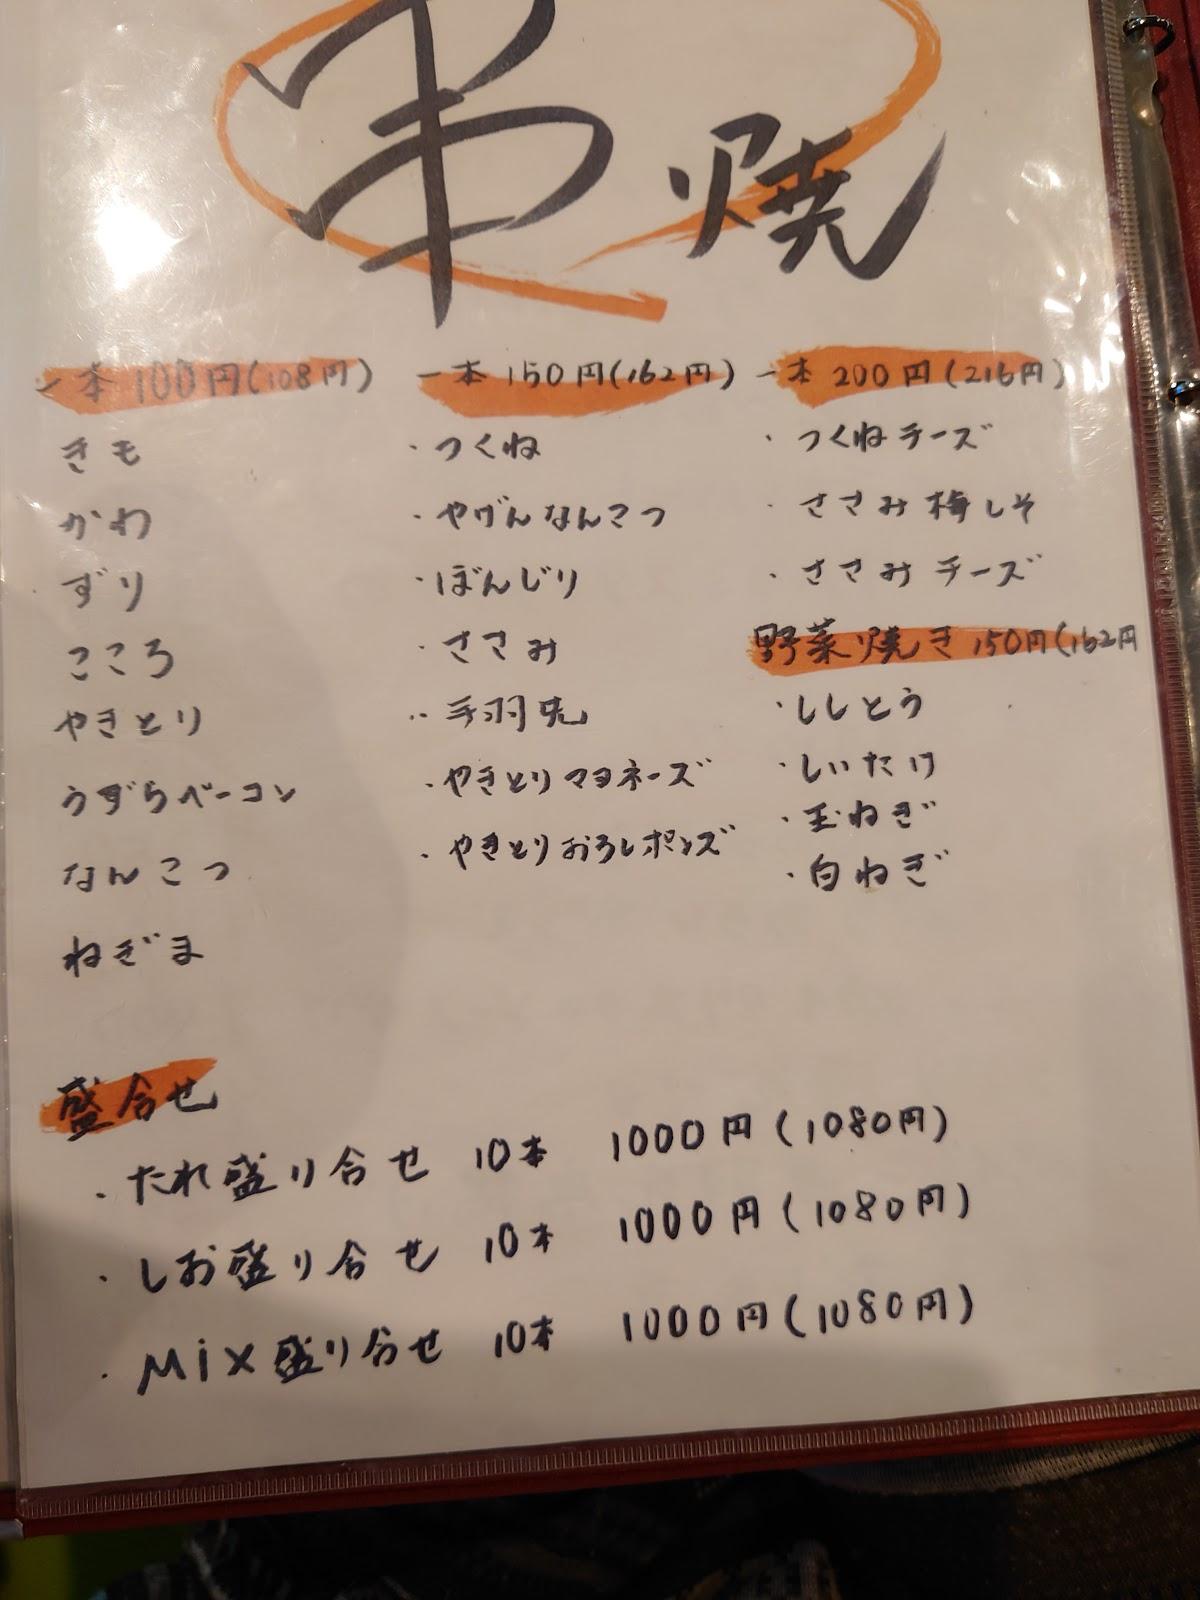 串焼
一本100円(108円)
きも
かわ
ずり
こころ
やきとり
うずらベーコン
なんこつ
ねぎま
一本150円(162円)
・つくね
・やげんなんこつ
・ぼんじり
・ささみ
・手羽先
・やきとりマヨネーズ
・やきとりおろしポンズ
一本200円(216円)
・つくねチーズ
・ささみ梅しそ
・ささみチーズ
野菜焼き150円(162円
・ししとう
・しいたけ
・玉ねぎ
・白ねぎ
盛合せ
・たれ盛り合せ 10本 1000円(1080円)
・しお盛り合せ 10本 1000円(1080円)
・Mix盛り合せ 10本 1000円(1080円)